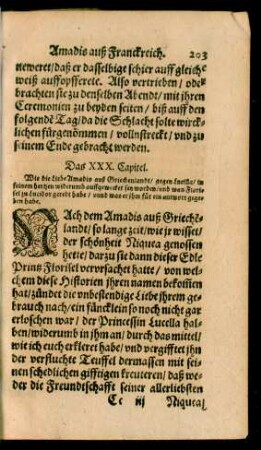 Amadis auß Franckreich. 203
neweret/daß er dasselbige schier auff gleiche
weiß auffopfferete. Also vertrieben / oder
brachten sie zu denselben Abendt/ mit jhren
Ceremonien zu beyden seiten / biß auff den
folgendē Tag/da die Schlacht solte wirck-
lichen fürgenommen / vollnstreckt / vnd zu
seinem Ende gebracht werden.
Das XXX. Capitel.
Wie die liebe Amadis auß Griechenlandt / gegen Lucella / in
seinem hertzen widerumb auffgewecket sey worden/vnd was Flori-
sel zu Lucidor geredt habe / vnnd was er jhm für ein antwort gege-
ben habe.
NAch dem Amadis auß Griechē-
landt / so lange zeit / wie jr wisset/
der schönheit Niquea genossen
hette/ dar zu sie dann dieser Edle
Printz Florisel vervrsachet hatte / von wel-
chem diese Historien jhren namen bekommen
hat/zündet die vnbestendige Liebe jhrem ge-
brauch nach/ ein füncklein so noch nicht gar
erloschen war / der Princessin Lucella hal-
ben/ widerumb in jhm an/ durch das mittel/
wie ich euch erkleret habe/ vnd vergifftet jhn
der verfluchte Teuffel dermassen mit sei-
nen schedlichen gifftigen kreutern/ daß we-
der die Freundtschafft seiner allerliebsten
Cc iij Niquea/